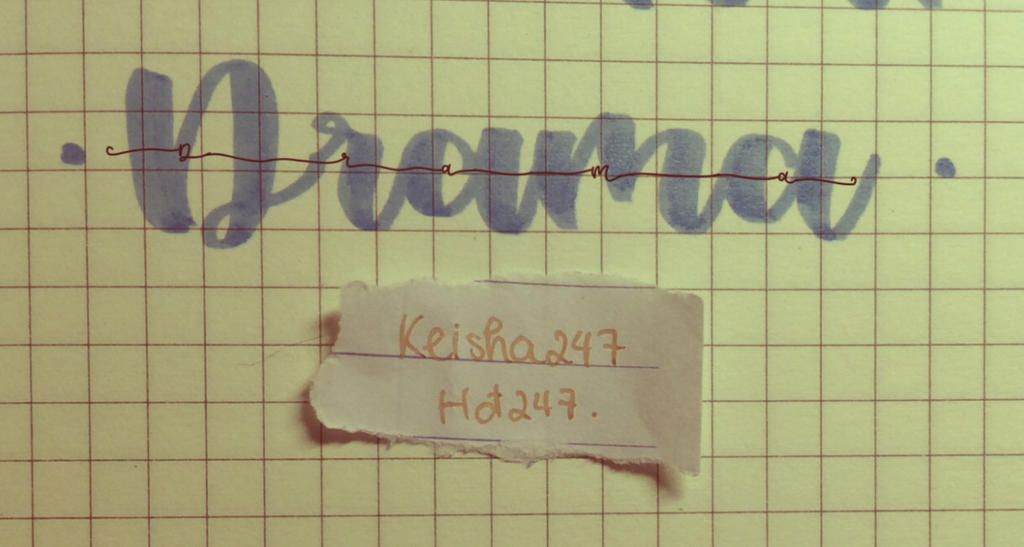 Drama
D r a m a
Keisha247
Hot247.